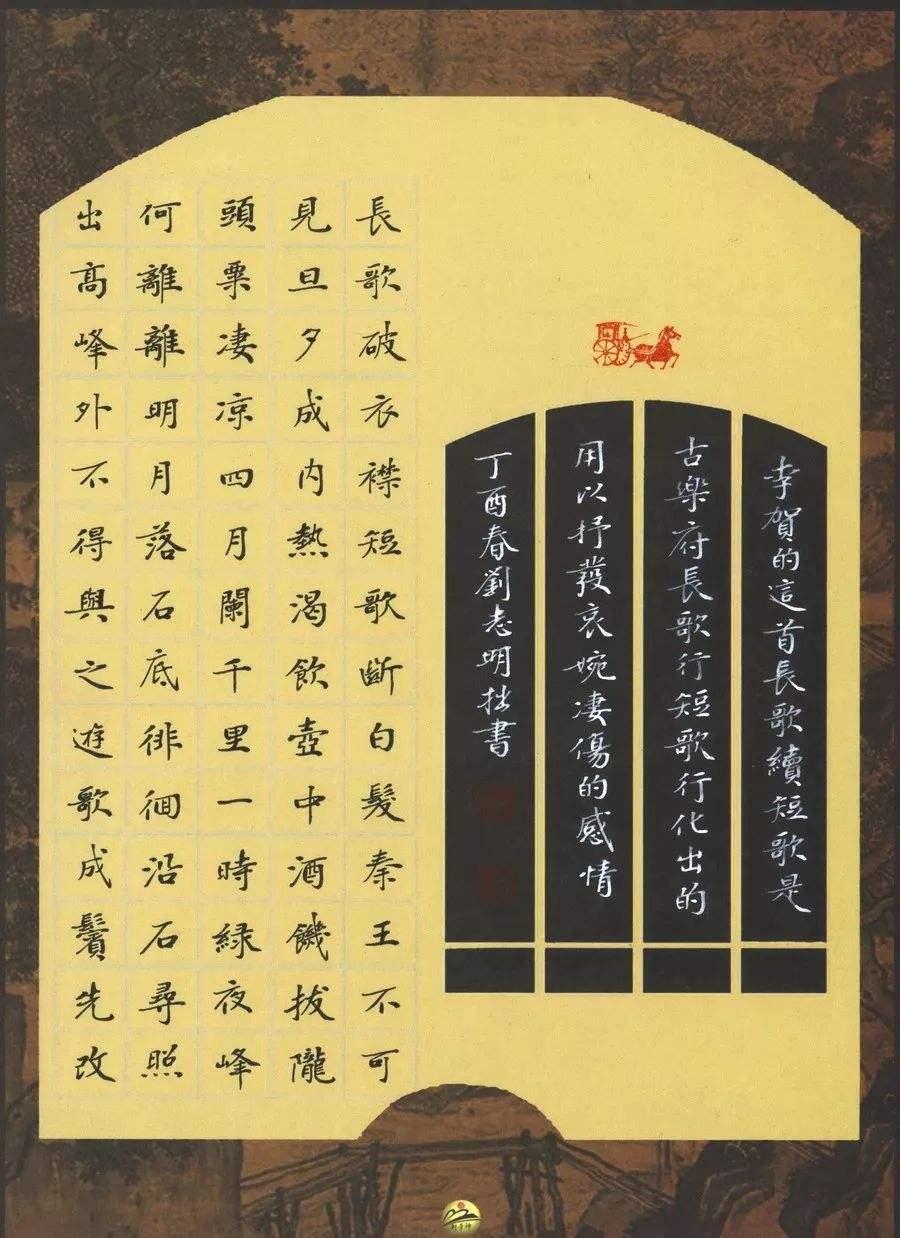 李賀的這首長歌續短歌是
古樂府長歌行短歌行化出的
用以抒發哀婉凄傷的感情
丁酉春劉志明拙書
長歌破衣襟短歌斷白髮秦王不可
見旦夕成內熱渴飲壺中酒饑拔隴
頭粟凄凉四月闌千里一時緑夜峰
何離離明月落石底徘徊沿石尋照
出高峰外不得與之遊歌成鬢先改